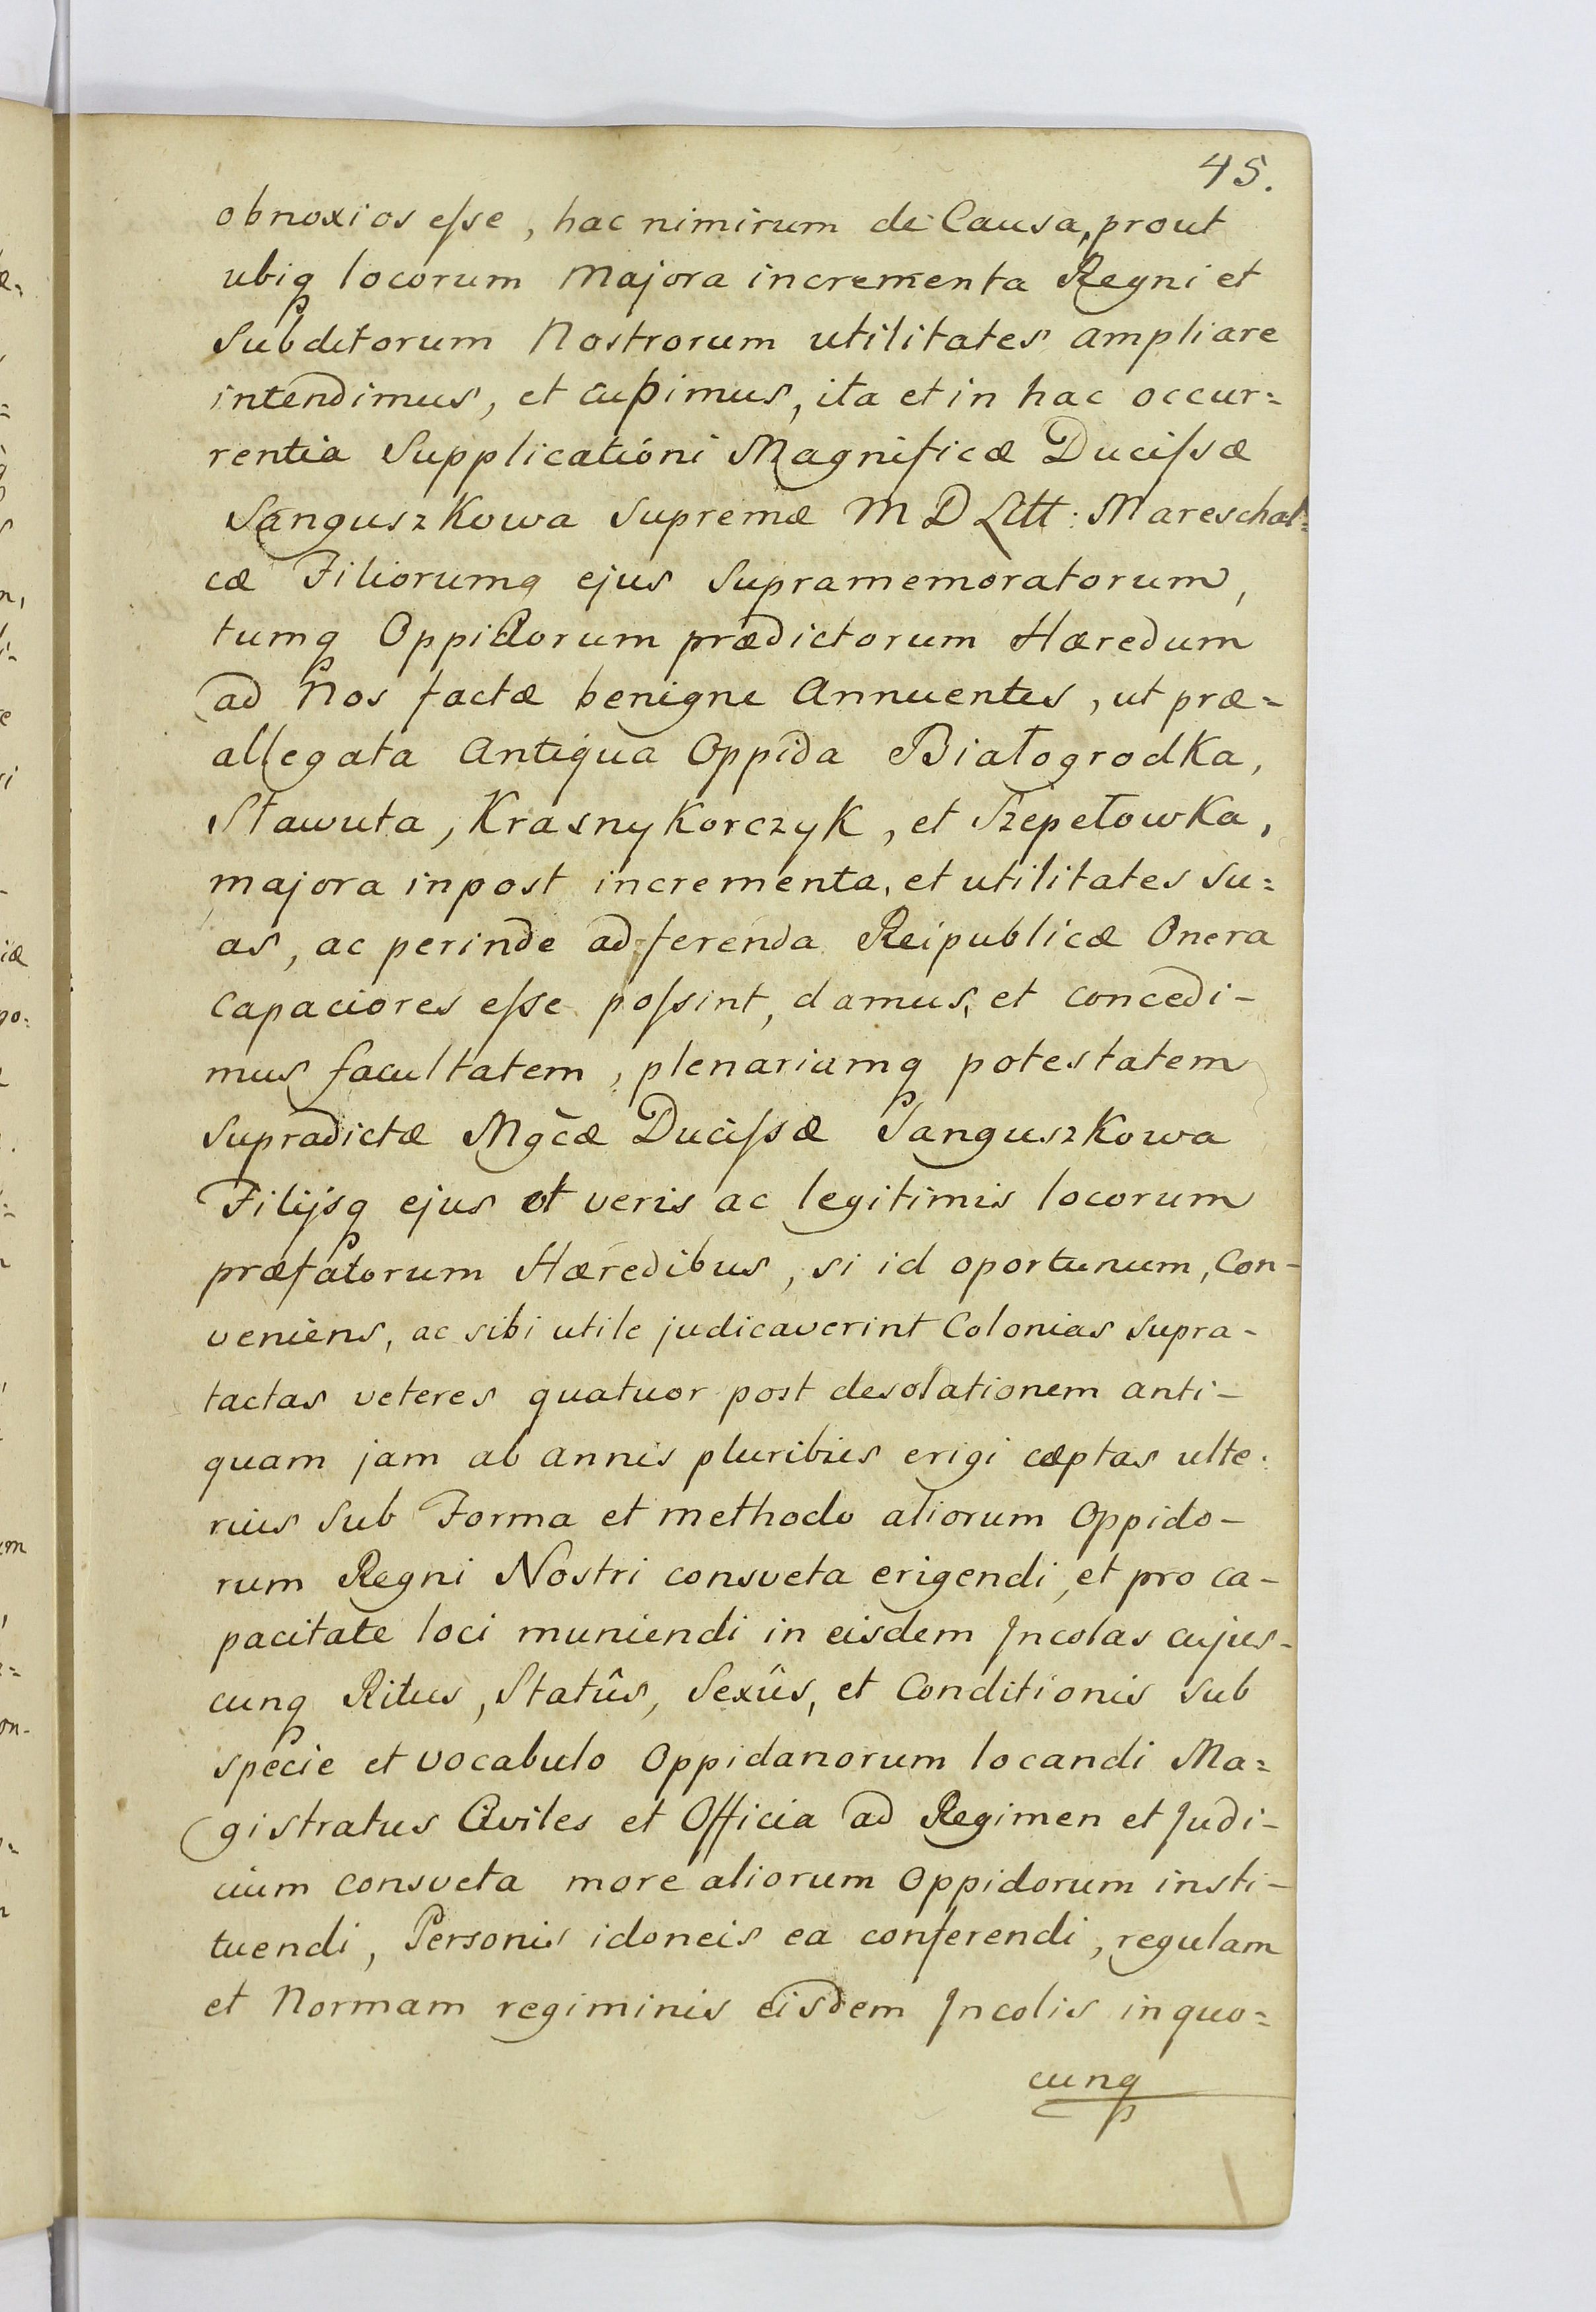 45.
obnoxios eſse, hac nimirum de Causa, prout
ubiq locorum Majora incrementa Regni et
Subditorum Nostrorum utilitates ampliare
intendimus, et cupimus, ita et in hac occur=
rentia Supplicationi Magnificæ Duciſsæ
Sanguszkowa Supremæ M D Litt: Mareschal=
cæ Filiorumq ejus Supramemoratorum,
tumq Oppidorum prædictorum Hæredum
ad Nos factæ benigne Annuentes, ut præ=
allegata Antiqua Oppida Białogrodka,
Sławuta, Krasny Korczyk, et Szepetowka,
majora inpost incrementa, et utilitates su=
as, ac perinde ad ferenda Reipublicæ Onera
capaciores eſse poſsint, damus, et concedi-
mus facultatem, plenariamq potestatem
supradictæ Mgcæ Duciſsæ Sanguszkowa
Filijsq ejus et veris ac legitimis locorum
præfatorum Hæredibus, si id oportunum, Con-
veniens, ac sibi utile judicaverint Colonias supra-
tactas veteres quatuor post desolationem anti-
quam jam ab annis pluribus erigi cæptas ulte-
rius sub Forma et methodo aliorum Oppido-
rum Regni Nostri consveta erigendi, et pro ca-
pacitate loci muniendi in eisdem Incolas cujus-
cunq Ritus, Statûs, Sexûs, et Conditionis sub
specie et vocabulo Oppidanorum locandi Ma=
gistratus Civiles et Officia ad Regimen et Judi-
cium consveta more aliorum Oppidorum insti-
tuendi, Personis idoneis ea conferendi, regulam
et Normam regiminis eisdem Incolis in quo=
cunq